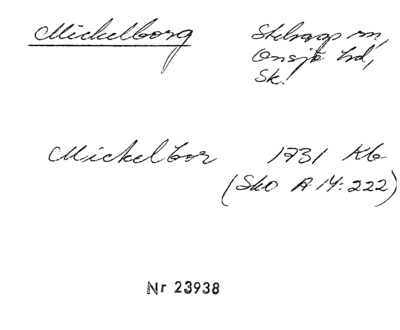 Mickelborg Stehags sn,
Onsjö hd,
Sk.
Mickelbor 1731 Kb
(Sko A 14:222)
Nr 23938